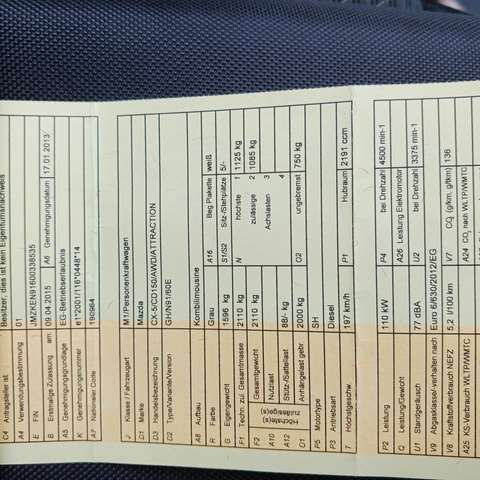 C4 Antragsteller ist Besitzer, dies ist kein Eigentumsnachweis
A4 Verwendungsbestimmung 01
E FIN JMZKEN91600338535
B Erstmalige Zulassung am 09.04.2015 A6 Genehmigungsdatum 17.01.2013
A5 Genehmigungsgrundlage EG-Betriebserlaubnis
K Genehmigungsnummer e1*2001/116*0448*14
A7 Nationaler Code 190964
J Klasse / Fahrzeugart M1/Personenkraftwagen
C1 Marke Mazda
D3 Handelsbezeichnung CX-5/CD150/AWD/ATTRACTION
C2 Type/Variante/Version GH/N91/50E
A8 Aufbau Kombilimousine
R Farbe Grau A16 Beg.Plakette weiß
G Eigengewicht 1596 kg S1/S2 Sitz-/Stehplätze 5/-
F1 Techn. zul.Gesamtmasse 2110 kg N höchste 1 1125 kg
F2 Gesamtgewicht 2110 kg zulässige 2 1085 kg
A10 Nutzlast Achslasten 3
A12 Stütz-/Sattellast 88/- kg 4
Höchste(s) zulässige(s)
O1 Anhängelast gebr. 2000 kg O2 ungebremst 750 kg
P5 Motortype SH
P3 Antriebsart Diesel
T Höchstgeschw. 197 km/h P1 Hubraum 2191 ccm
P2 Leistung 110 kW P4 bei Drehzahl 4500 min-1
Q Leistung/Gewicht A26 Leistung Elektromotor
U1 Standgeräusch 77 dBA U2 bei Drehzahl 3375 min-1
V9 Abgasklasse/ verhalten nach Euro 6/630/2012/EG
V8 Kraftstoffverbrauch NEFZ 5,2 l/100 km V7 CO2 (g/km, g/km) 136
A25 KS-Verbrauch WLTP/WMTC A24 CO2 nach WLTP/WMTC